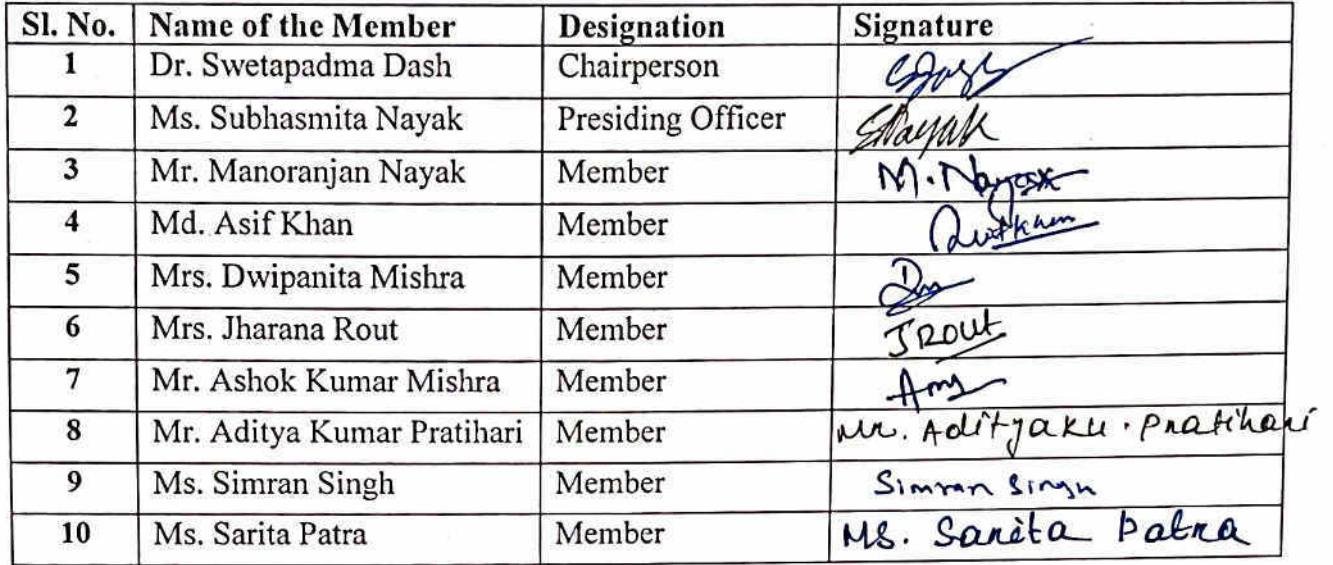 Sl. No. Name of the Member Designation Signature
1 Dr. Swetapadma Dash Chairperson
2 Ms. Subhasmita Nayak Presiding Officer SNayak
3 Mr. Manoranjan Nayak Member M. Nayak
4 Md. Asif Khan Member
5 Mrs. Dwipanita Mishra Member
6 Mrs. Jharana Rout Member JROUt
7 Mr. Ashok Kumar Mishra Member
8 Mr. Aditya Kumar Pratihari Member Mr. Adityaku. Pratihari
9 Ms. Simran Singh Member Simran Singh
10 Ms. Sarita Patra Member Ms. Sarita Patra